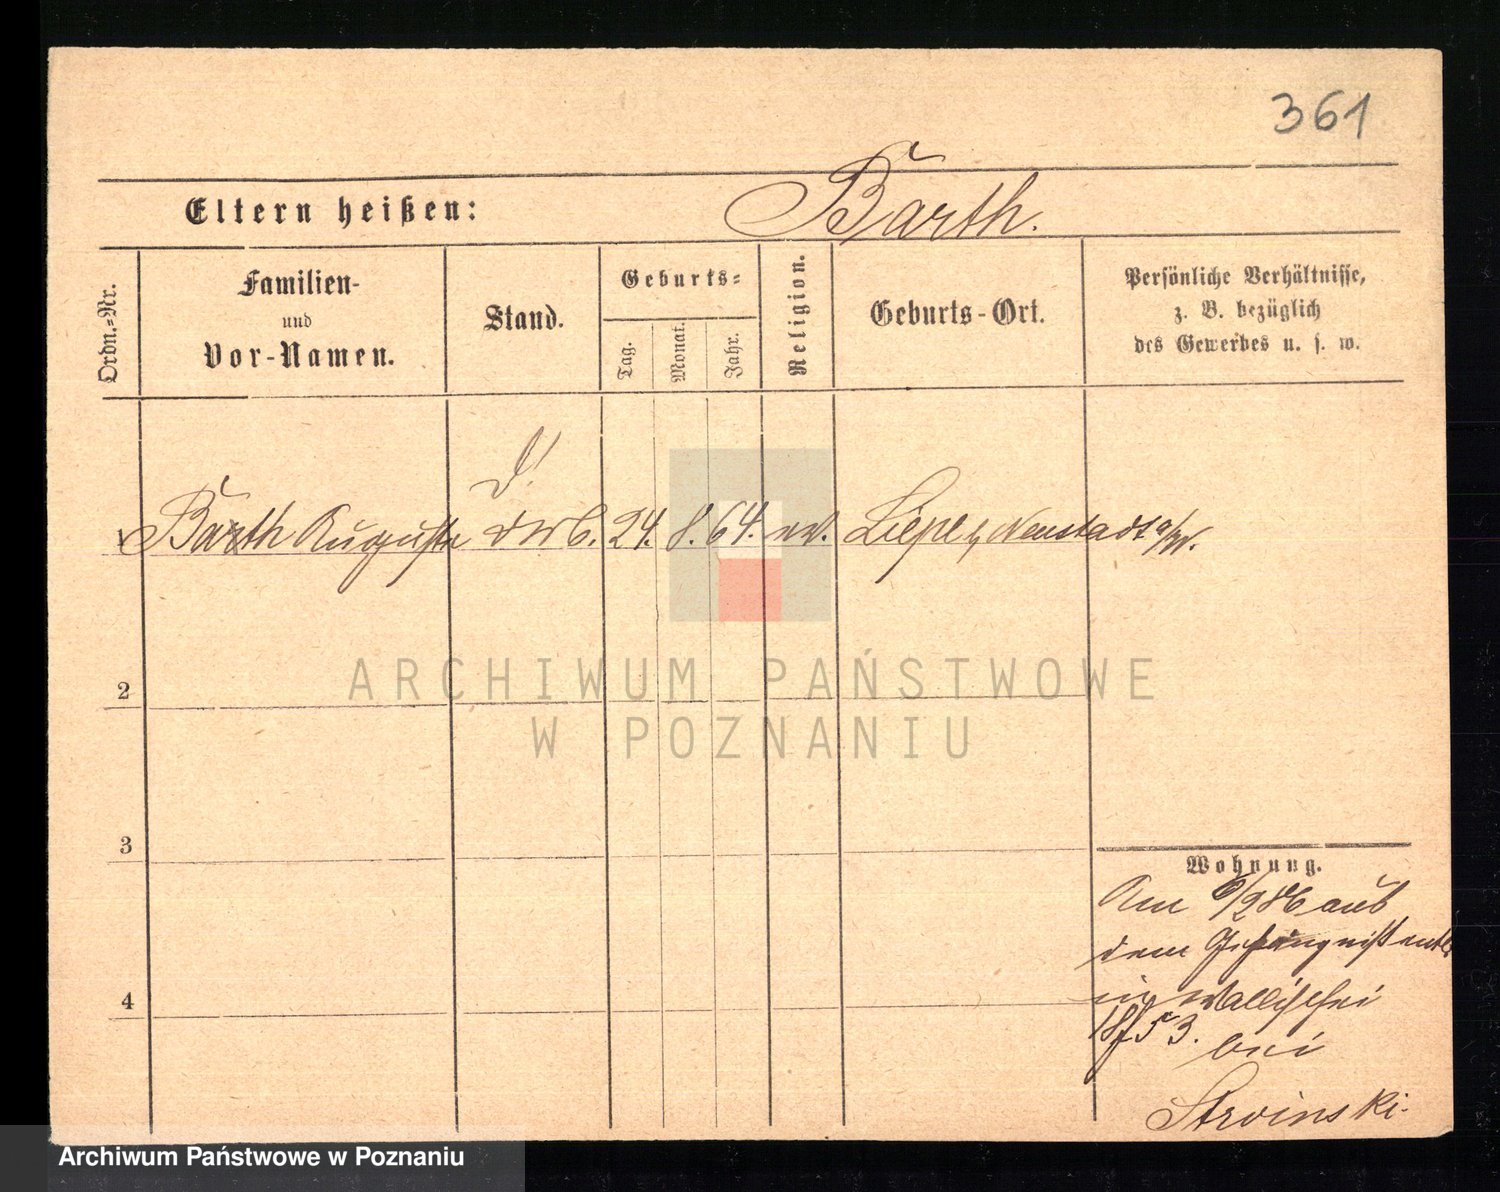 361
Eltern heißen: Barth.
Ordn.=Nr.
Familien-
und
Vor-Namen.
Stand.
Geburts=
Tag.
Monat.
Jahr.
Religion.
Geburts-Ort.
Persönliche Verhältnisse,
z. B. bezüglich
des Gewerbes u. s. w.
1 Barth Auguste 24. 8. 64. ev. Neustadt a/W.
2
3
4
Wohnung.
Am 6/9 86 aus
dem Gefängniß entl.
in Wallischei
bei
Stroinski.
ARCHIWUM PAŃSTWOWE
W POZNANIU
Archiwum Państwowe w Poznaniu